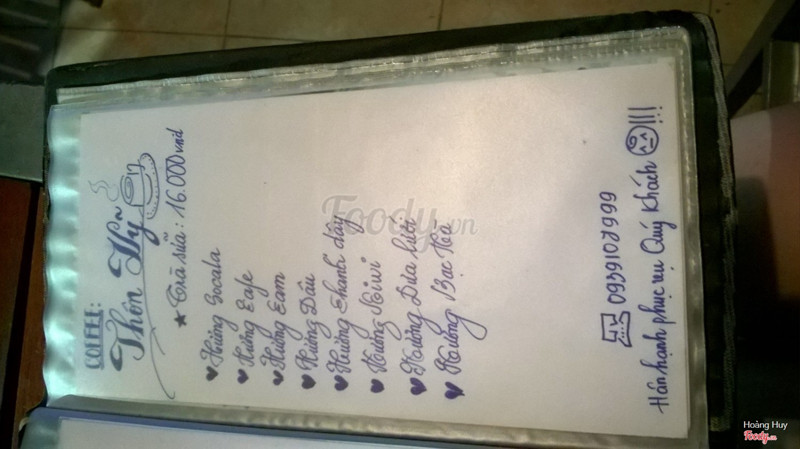 COFFEE:
Thôn Vỹ
★ Trà sữa: 16.000 vnd
♥ Hương Socola
♥ Hương Cafe
♥ Hương Cam
♥ Hương Dâu
♥ Hương Chanh dây
♥ Hương Kiwi
♥ Hương Dưa lưới
♥ Hương Bạc Hà
Hân hạnh phục vụ Quý Khách !!!
Foody.vn
Hoàng Huy
Foody.vn